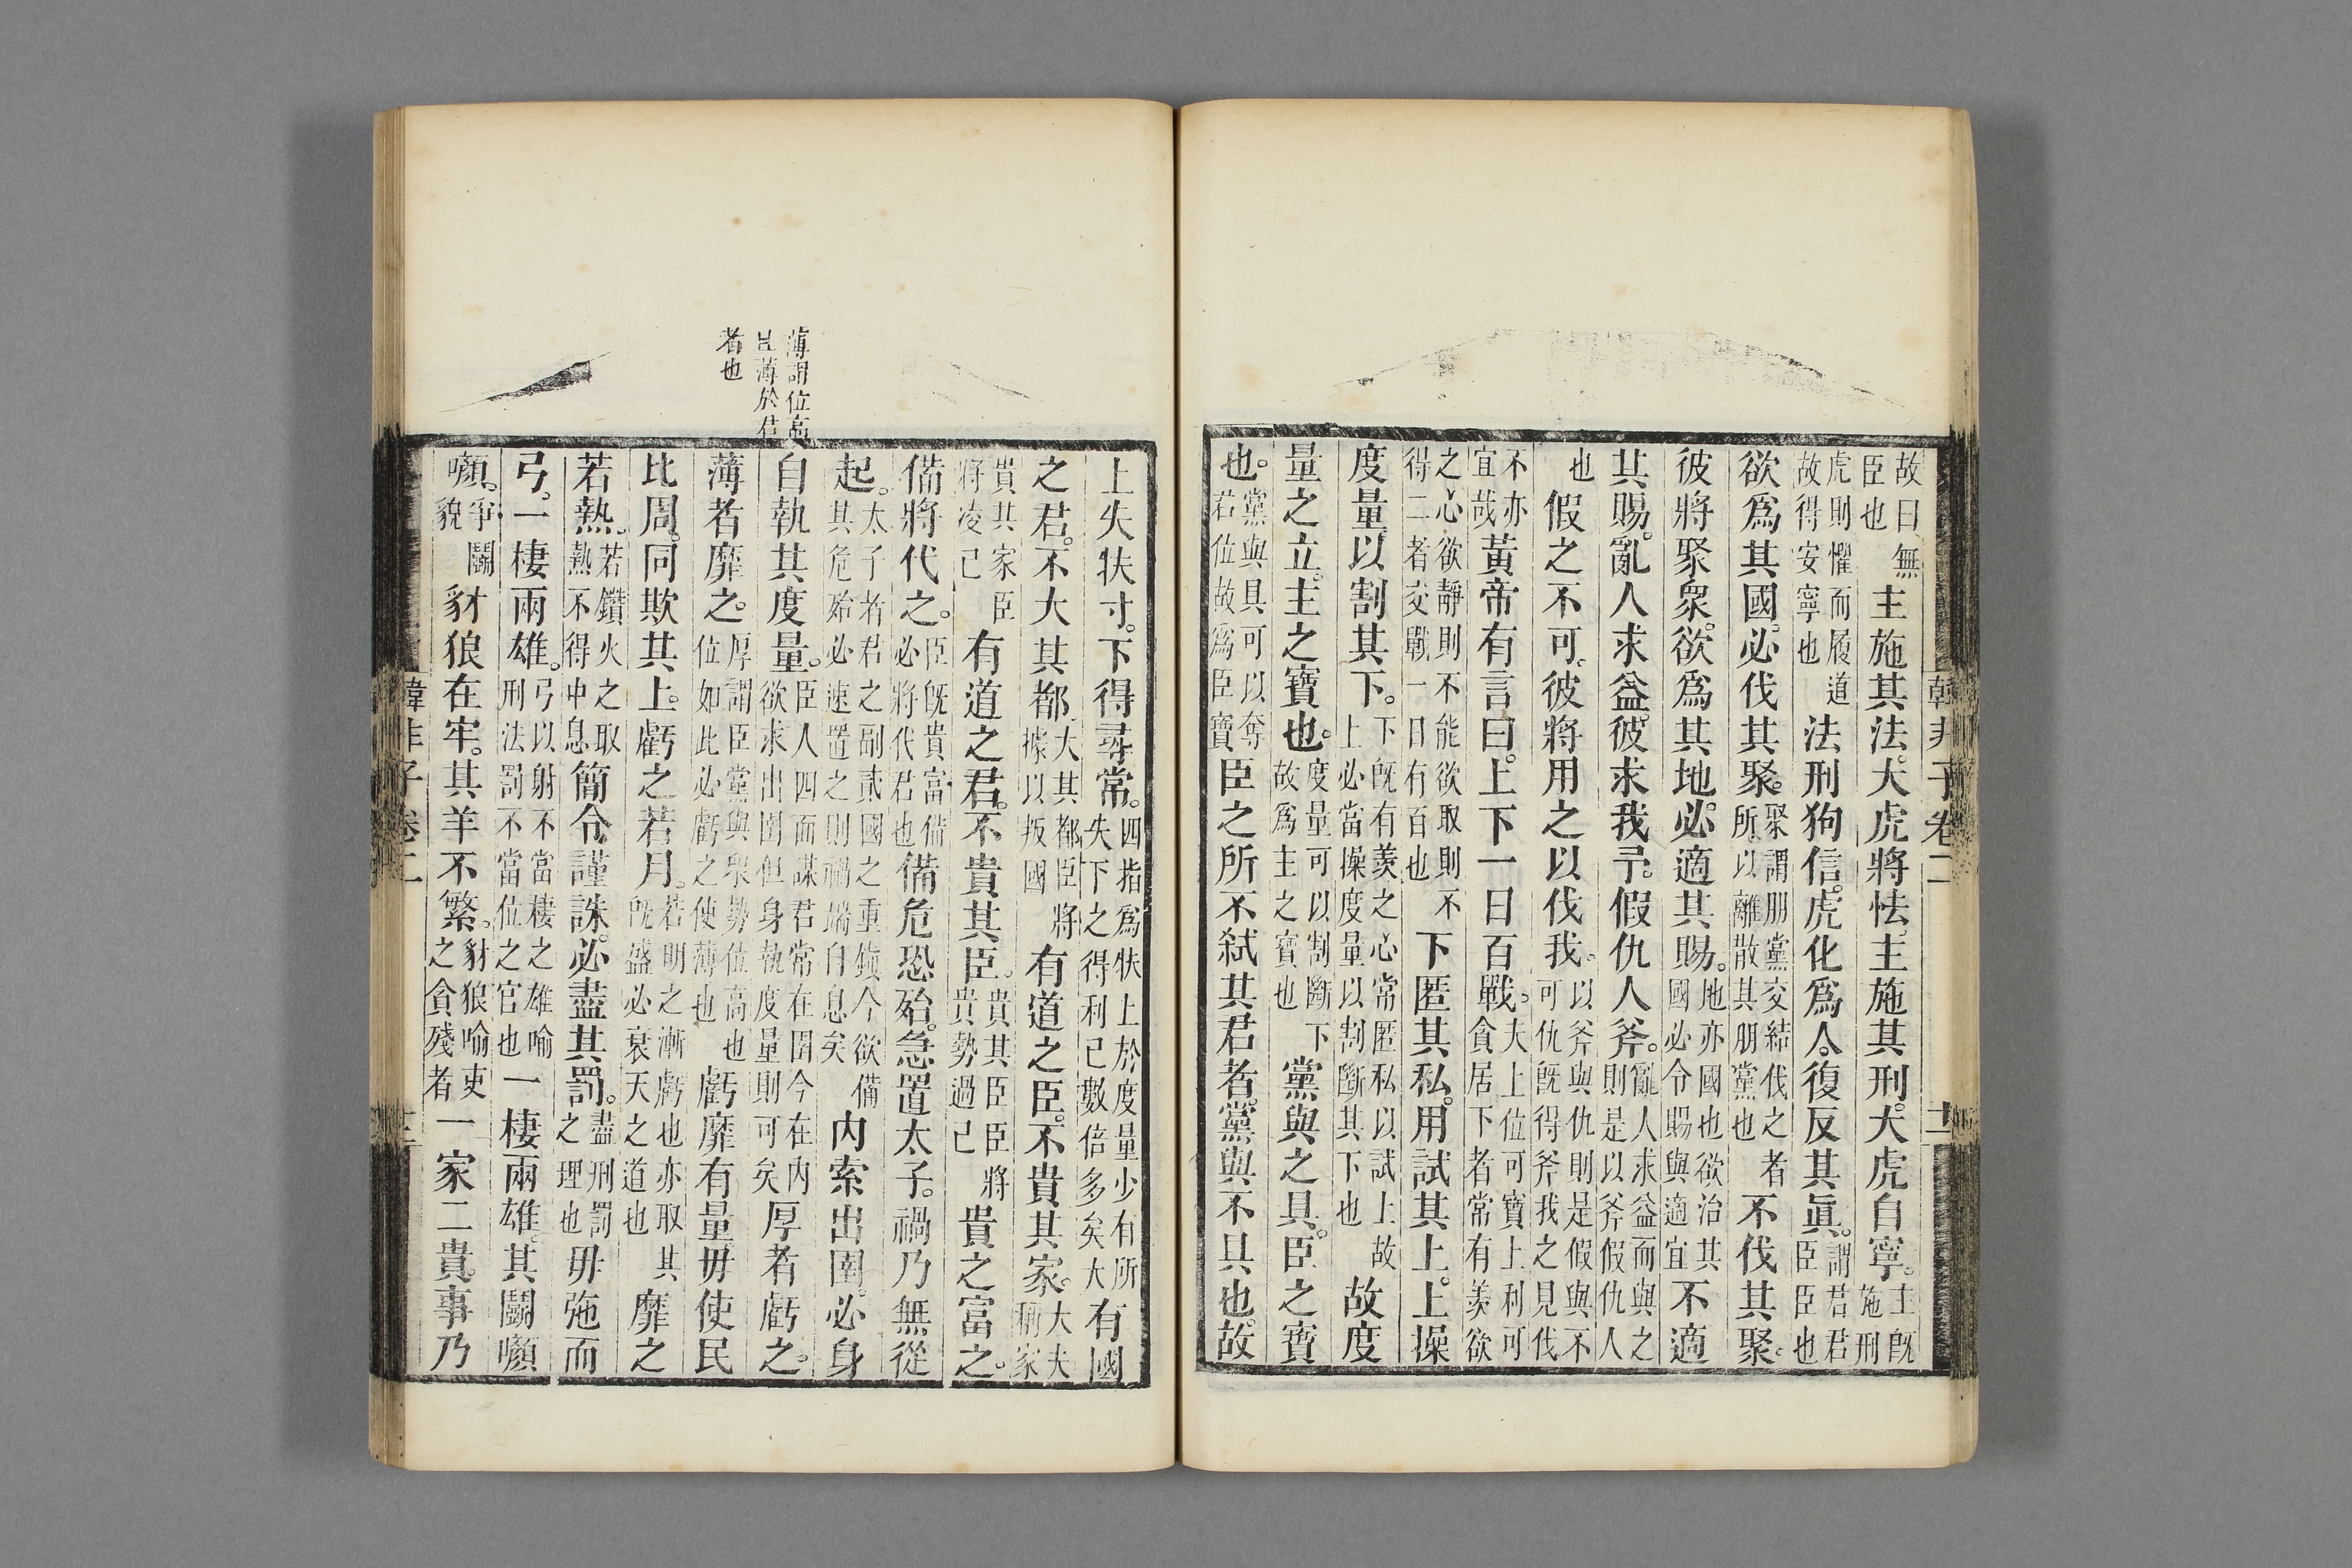 故曰無臣也主施其法。大虎將怯。主施其刑。大虎自寧。主既施刑
虎則懼而履道故得安寧也法刑狗信。虎化爲人。復反其眞。謂君君臣臣也
欲爲其國。必伐其聚。聚謂朋黨交結伐之者所以離散其朋黨也不伐其聚。
彼將聚衆。欲爲其地。必適其賜。地亦國也欲治其國必令賜與適宜不適
其賜。亂人求益。彼求我予。假仇人斧。亂人求益而與之則是以斧假仇人
也假之不可。彼將用之以伐我。以斧與仇則是假與不可仇既得斧我之見伐
不亦宜哉黃帝有言曰。上下一日百戰。夫上位可寶上利可貪居下者常有羨欲
之心欲靜則不能欲取則不得二者交戰一日有百也下匿其私。用試其上。上操
度量。以割其下。下既有羨之心常匿私以試上故上必當操度量以割斷其下也故度
量之立。主之寶也。度量可以割斷下故爲主之寶也黨與之具。臣之寶
也。黨與具可以奪君位故爲臣寶臣之所不弑其君者。黨與不具也。故
韓非子卷二
十二
上失扶寸。下得尋常。四指爲扶上於度量少有所失下之得利已數倍多矣大有國
之君。不大其都。大其都臣將據以叛國有道之臣。不貴其家。大夫稱家
貴其家臣將凌己有道之君。不貴其臣。貴其臣臣將貴勢過己貴之富之。
備將代之。臣既貴富備必將代君也備危恐殆。急置太子。禍乃無從
起。太子者君之副貳國之重鎮今欲備其危殆必速置之則禍端自息矣内索出圉。必身
自執其度量。臣人四面謀君常在圉今在内欲求出圉但身執度量則可矣厚者虧之。
薄者靡之。厚謂臣黨與衆勢位高也位如此必虧之使薄也虧靡有量。毋使民
比周。同欺其上。虧之若月。若明之漸虧也亦取其既盛必衰天之道也靡之
若熱。若鑽火之取熱不得中息簡令謹誅。必盡其罰。盡刑罰之理也毋弛而
弓。一棲兩雄。弓以射不當棲之雄喻刑法罰不當位之官也一棲兩雄。其鬭㘖
㘖。爭鬭貌豺狼在牢。其羊不繁。豺狼喻吏之貪殘者一家二貴。事乃
薄謂位高
且薄於君
者也
韓非子卷二